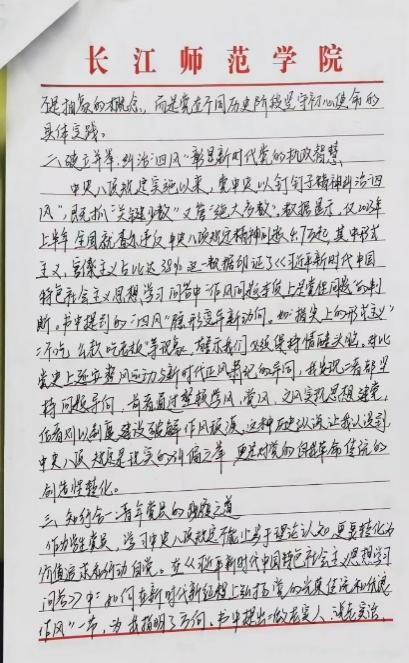 长江师范学院
不是抽象的概念，而是党在不同历史阶段坚守初心使命的
具体实践。
二、破立并举：纠治"四风"彰显新时代党的执政智慧
中央八项规定实施以来，党中央以钉钉子精神纠治四
风"，既抓"关键少数"又管"绝大多数"。数据显示，仅
上半年全国就查处违反中央八项规定精神问题 万起，其中形式
主义、官僚主义占比达38%这一数据印证了《习近平新时代中国
特色社会主义思想学习问答》中"作风问题本质上是党性问题"的判
断。书中提到的"四风"隐形变异新动向。如"指尖上的形式主义"
"不吃公款吃老板"等现象，警示我们必须保持清醒头脑。对比
党史上延安整风运动与新时代正风肃纪的异同，我发现二者都坚
持问题导向，前者通过整顿学风、党风、文风实现思想建党，
后者则以制度建设破解作风顽疾，这种历史纵深让我认识到，
中央八项规定是现实的 之举，更是对党的自我革命传统的
创造性转化。
三、知行合一：青年党员的 之道
作为学生党员，学习中央八项规定不能止步于理论认知，更要转化为
价值追求和行动自觉。在《习近平新时代中国特色社会主义思想学习
问答》中"如何在新时代新征程上弘扬党的光荣传统和优良
作风"一章，为我指明了方向。书中提出"做老实人、说老实话、